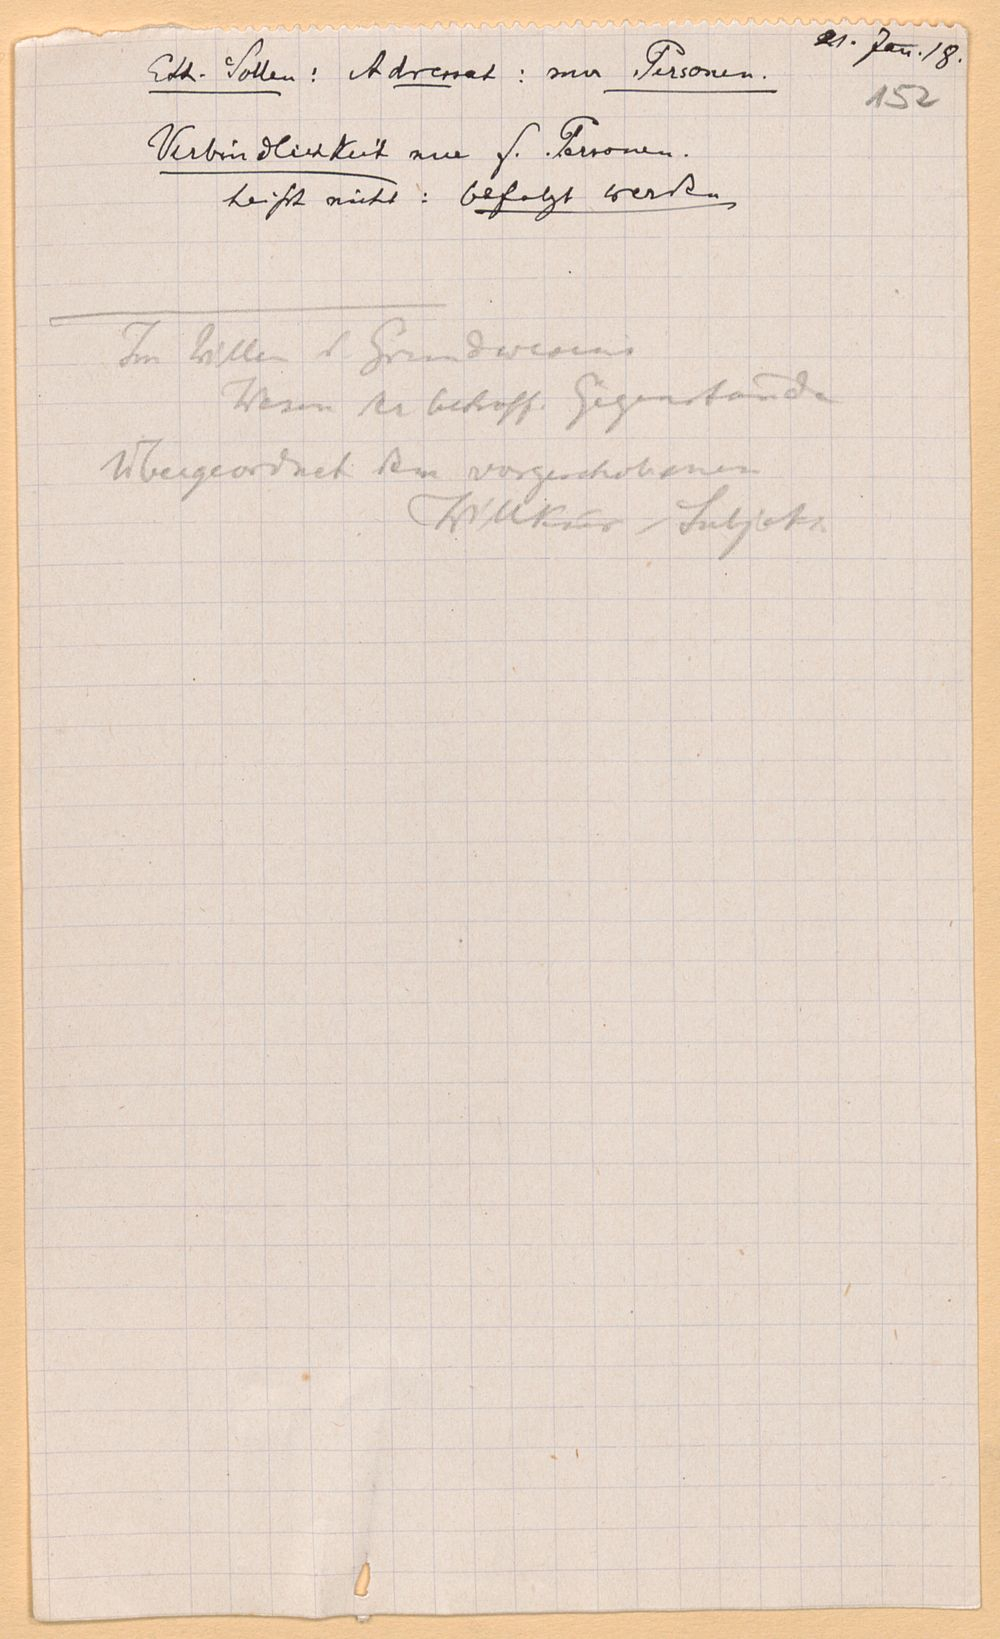 21. Jan. 18.
152
Eth. Sollen: Adressat: nur Personen.
Verbindlichkeit nur f. Personen.
heißt nicht: befolgt werden
Im Willen d Grundwesens
Wesen der betroff. Gegenstände
Übergeordnet dem vorgeschobenen
Willkür-Subjekt